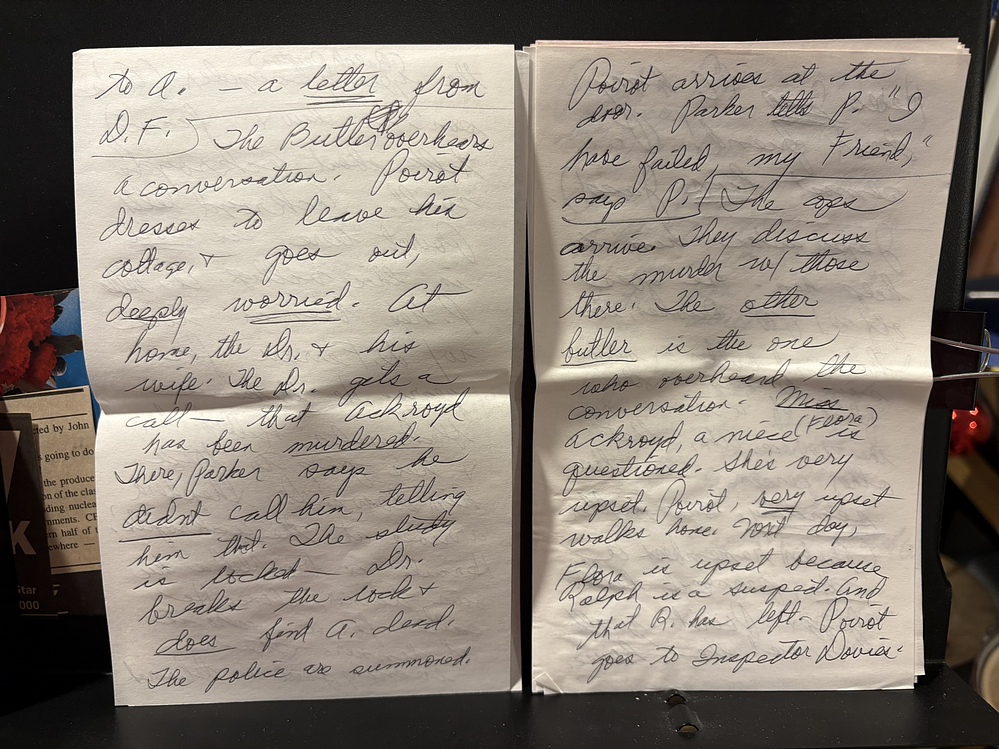 to A. — a letter from
D.F. The Butler overhears
a conversation. Poirot
dresses to leave his
cottage, & goes out,
deeply worried. At
home, the Dr. & his
wife. The Dr. gets a
call — that Ackroyd
has been murdered.
There, Parker says he
didnt call him, telling
him that. The study
is locked — Dr.
breaks the lock &
does find A. dead.
The police are summoned.
Poirot arrives at the
door. Parker tells P. "I
have failed, my Friend,"
says P. The cops
arrive. They discuss
the murder w/ those
there. The other
butler is the one
who overheard the
conversation. Miss
(Flora)
Ackroyd, a niece is
questioned. She's very
upset. Poirot, very upset
walks home. Next day,
Flora is upset because
Ralph is a suspect. And
that R. has left. Poirot
goes to Inspector Davies.
ed by John
s going to do
the produce
on of the clas
ding nuclea
nments. CE
rn half of t
ewhere —
K
Star
000